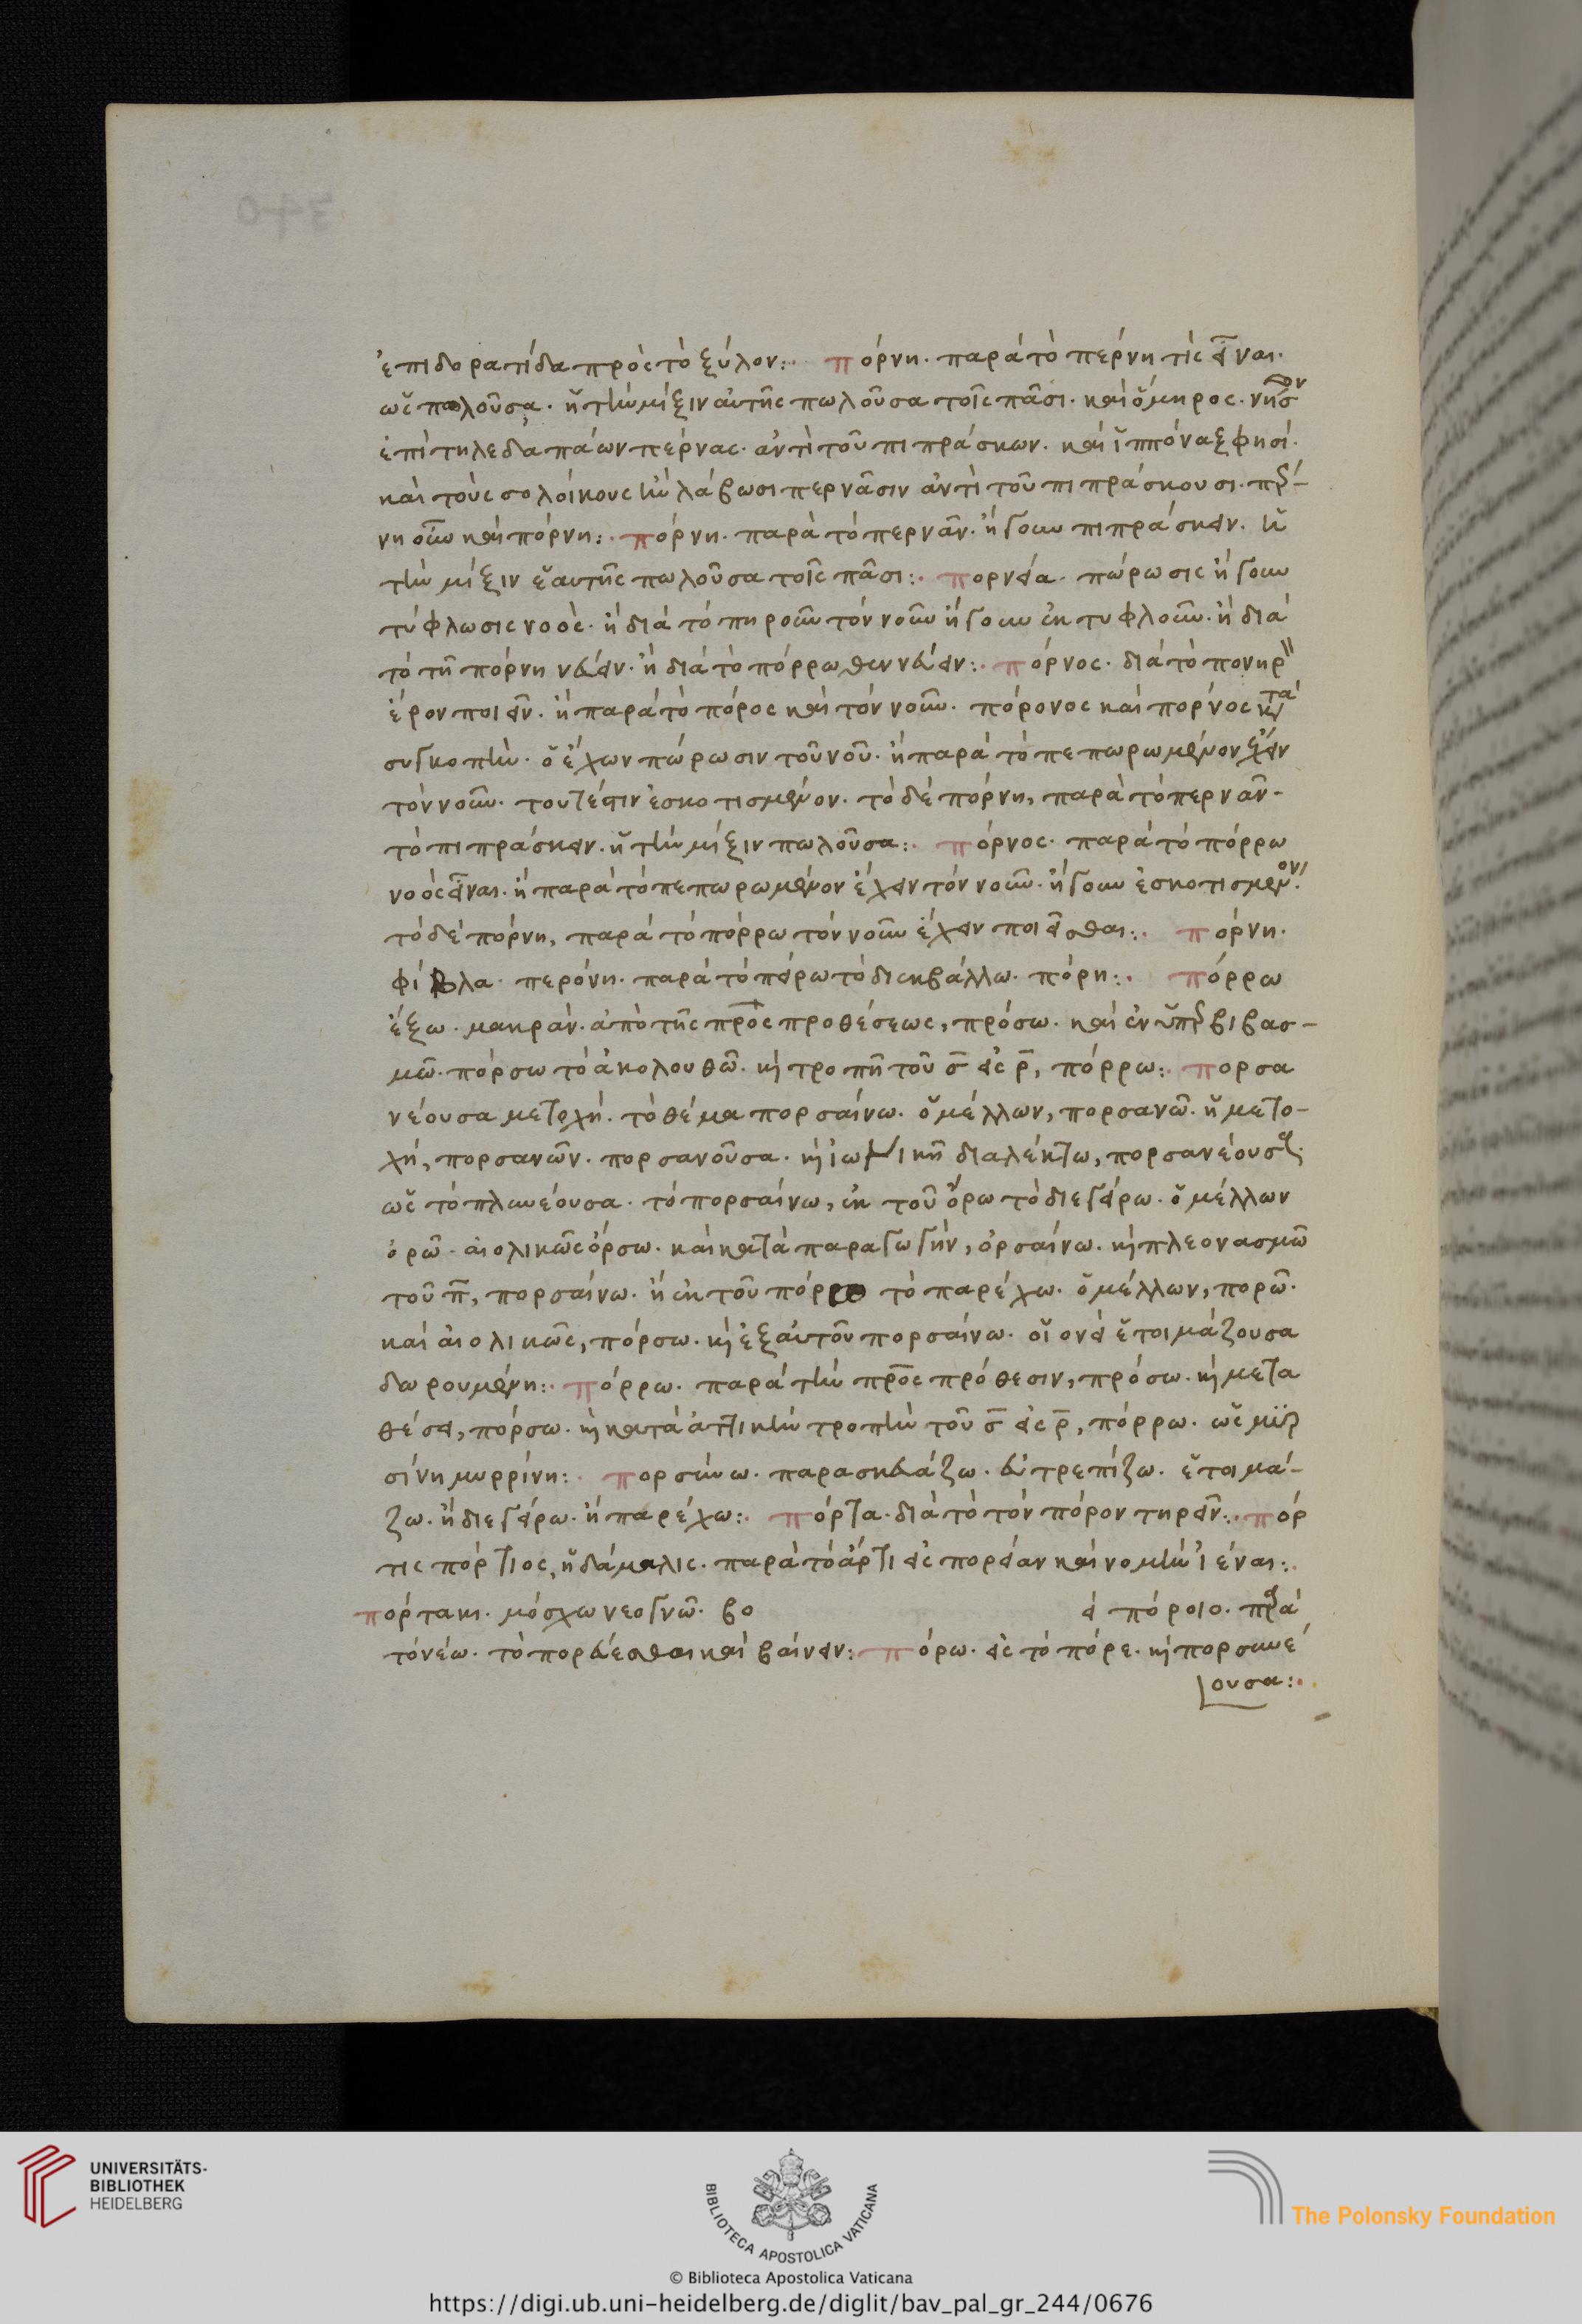 ἐπιδορατίδα πρὸς τὸ ξύλον:· πόρνη· παρὰ τὸ πέρνη τίς εἶναι·
ὡς πωλοῦσα· ἡ τὴν μίξιν αὐτῆς πωλοῦσα τοῖς πᾶσι· καὶ ὅμηρος· νῆσον
ἐπὶ τηλεδαπάων πέρνας· ἀντὶ τοῦ πιπράσκων· καὶ ἱππόναξ φησί·
καὶ τοὺς σολοίκους ἢν λάβωσι περνᾶσιν ἀντὶ τοῦ πιπράσκουσι· πέρ-
νη οὖν καὶ πόρνη:· πόρνη· παρὰ τὸ περνᾶν· ἤγουν πιπράσκειν· ἡ
τὴν μίξιν ἑαυτῆς πωλοῦσα τοῖς πᾶσι:· πορνεία· πώρωσις ἤγουν
τύφλωσις νοός· ἢ διὰ τὸ πηροῦν τὸν νοῦν ἤγουν ἐκτυφλοῦν· ἢ διὰ
τὸ τῆ πόρνη νεύειν· ἢ διὰ τὸ πόρρωθεν νεύειν:· πόρνος· διὰ τὸ πονηρ
ἔρον ποιεῖν· ἢ παρὰ τὸ πόρος καὶ τὸν νοῦν· πόρονος καὶ πόρνος κατὰ
συγκοπὴν· ὁ ἔχων πώρωσιν τοῦ νοῦ· ἢ παρὰ τὸ πεπωρωμένον ἔχειν
τὸν νοῦν· τουτέστιν ἐσκοτισμένον· τὸ δὲ πόρνη, παρὰ τὸ περνᾶν·
τὸ πιπράσκειν· ἡ τὴν μίξιν πωλοῦσα:· πόρνος· παρὰ τὸ πόρρω
νοὸς εἶναι· ἢ παρὰ τὸ πεπωρωμένον ἔχειν τὸν νοῦν· ἤγουν ἐσκοτισμένον·
τὸ δὲ πόρνη, παρὰ τὸ πόρρω τὸν νοῦν ἔχειν ποιεῖσθαι:· πόρνη·
φίβλα· περόνη· παρὰ τὸ πείρω τὸ διεκβάλλω· πόρη:· πόρρω
ἔξω· μακράν· ἀπὸ τῆς πρὸς προθέσεως, πρόσω· καὶ ἐν ὑπερβιβασ-
μῶ· πόρσω τὸ ἀκολουθῶ· καὶ τροπῆ τοῦ σ εἰς ρ, πόρρω:· πορσα
νέουσα μετοχή· τὸ θέμα πορσαίνω· ὁ μέλλων, πορσανῶ· ἡ μετο-
χή, πορσανῶν· πορσανοῦσα· καὶ ἰωνικῆ διαλέκτω, πορσανέουσα·
ὡς τὸ πλανέουσα· τὸ πορσαίνω, ἐκ τοῦ ὄρω τὸ διεγείρω· ὁ μέλλων
ὀρῶ· αἰολικῶς ὄρσω· καὶ κατὰ παραγωγήν, ὀρσαίνω· καὶ πλεονασμῶ
τοῦ π, πορσαίνω· ἢ ἐκ τοῦ πόρω τὸ παρέχω· ὁ μέλλων, πορῶ·
καὶ αἰολικῶς, πόρσω· καὶ ἐξ αὐτοῦ πορσαίνω· οἱονεὶ ἑτοιμάζουσα
δωρουμένη:· πόρρω· παρὰ τὴν πρὸς πρόθεσιν, πρόσω· καὶ μετα
θέσει, πόρσω· καὶ κατὰ ἀττικὴν τροπὴν τοῦ σ εἰς ρ, πόρρω· ὡς μυρ
σίνη μυρρίνη:· πορσύνω· παρασκευάζω· εὐτρεπίζω· ἑτοιμά-
ζω· ἢ διεγείρω· ἢ παρέχω:· πόρτα· διὰ τὸ τὸν πόρον τηρεῖν:· πόρ
τις πόρτιος, ἡ δάμαλις· παρὰ τὸ ἄρτι εἰς πορείαν καὶ νομὴν ἰέναι:·
πόρτακι· μόσχω νεογνῶ· βο ει πόροιο· παρὰ
τὸ νέω· τὸ πορεύεσθαι καὶ βαίνειν:· πόρω· εἰς τὸ πόρε· καὶ πορσανέ
ουσα:·
UNIVERSITÄTS-
BIBLIOTHEK
HEIDELBERG
BIBLIOTECA APOSTOLICA VATICANA
The Polonsky Foundation
© Biblioteca Apostolica Vaticana
https://digi.ub.uni-heidelberg.de/diglit/bav_pal_gr_244/0676